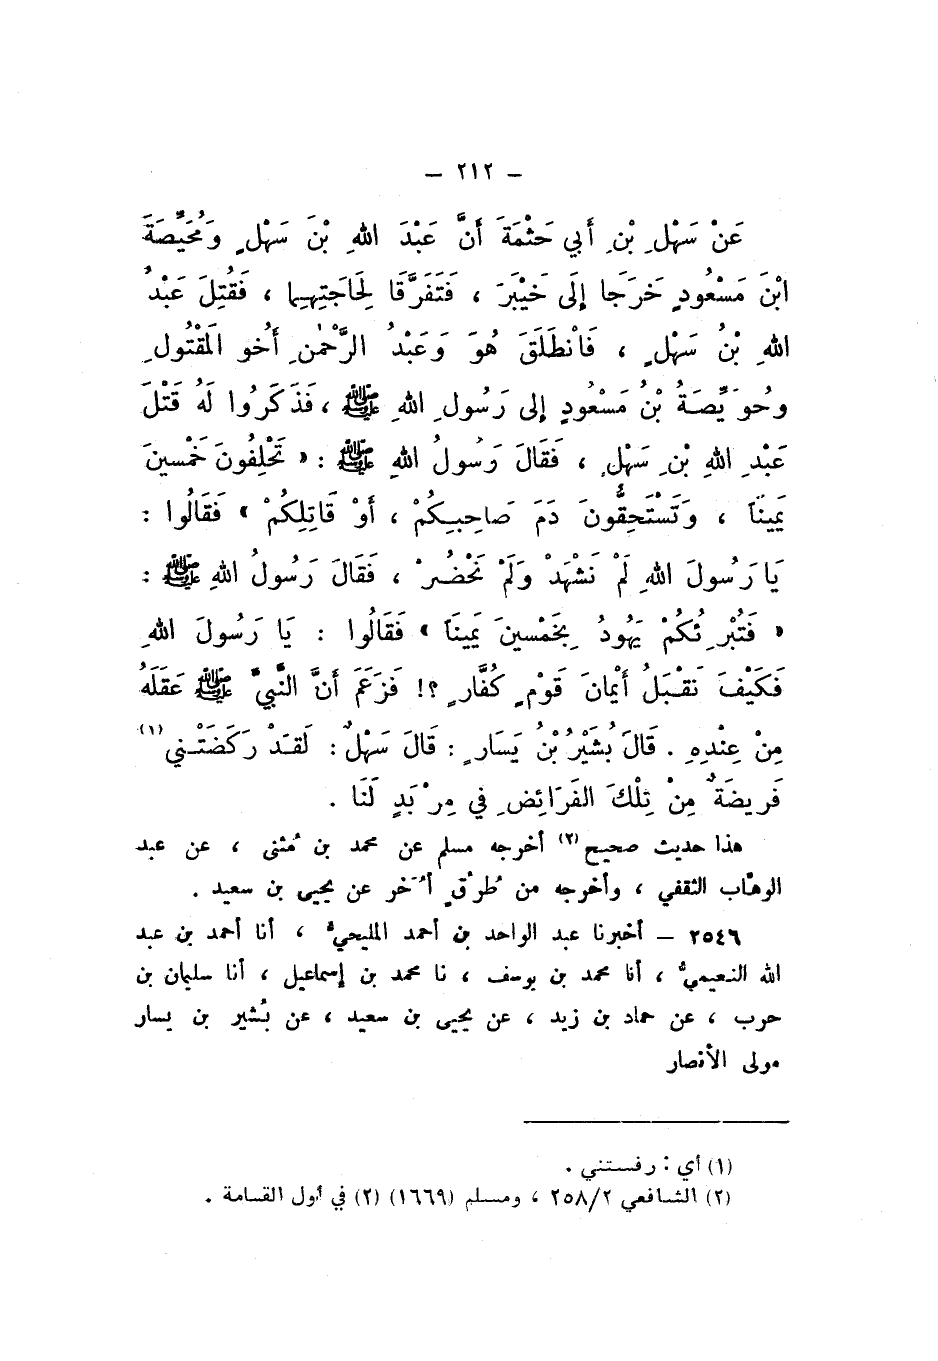 – ٢١٢ –
عَنْ سَهْلِ بْنِ أَبي حَثْمَةَ أَنَّ عَبْدَ اللهِ بْنَ سَهْلٍ وَمُحَيِّصَةَ
ابْنَ مَسْعُودٍ خَرَجَا إِلَى خَيْبَرَ ، فَتَفَرَّقَا لِحَاجَتِهِما ، فَقُتِلَ عَبْدُ
اللهِ بْنُ سَهْلٍ ، فَانْطَلَقَ هُوَ وَعَبْدُ الرَّحْمٰنِ أَخُو المَقْتُولِ
وحُوَيِّصَةُ بْنُ مَسْعُودٍ إِلى رَسُولِ اللهِ ﷺ ، فَذَكَرُوا لَهُ قَتْلَ
عَبْدِ اللهِ بْنِ سَهْلٍ ، فَقَالَ رَسُولُ اللهِ ﷺ : « تَحْلِفُونَ خَمْسينَ
يَمِينَاً ، وَتَسْتَحِقُّونَ دَمَ صَاحِبِكُمْ ، أَوْ قَاتِلِكُمْ » فَقَالُوا :
يَا رَسُولَ اللهِ لَمْ نَشْهَدْ وَلَمْ نَحْضُرْ ، فَقَالَ رَسُولُ اللهِ ﷺ :
« فَتُبْرِئُكُمْ يَهُودُ بِخَمْسينَ يَمِينَاً » فَقَالُوا : يَا رَسُولَ اللهِ
فَكَيْفَ نَقْبَلُ أَيْمانَ قَوْمٍ كُفَّارٍ ؟! فَزَعَمَ أَنَّ النَّبيَّ ﷺ عَقَلَهُ
مِنْ عِنْدِهِ . قَالَ بُشَيْرُ بْنُ يَسَارٍ : قَالَ سَهْلٌ : لَقَدْ رَكَضَتْني (١)
فَرِيضَةٌ مِنْ تِلْكَ الفَرَائضِ في مِرْبَدٍ لَنَا .
هذا حديث صحيح (٢) أخرجه مسلم عن محمد بن مُثنى ، عن عبد
الوهّاب الثقفي ، وأخرجه من طُرُقٍ أُخَر عن يحيى بن سعيد .
٢٥٤٦ – أخبرنا عبد الواحد بن أحمد المليحيُّ ، أنا أحمد بن عبد
الله النعيميُّ ، أنا محمد بن يوسف ، نا محمد بن إسماعيل ، أنا سليمان بن
حرب ، عن حماد بن زيد ، عن يحيى بن سعيد ، عن بُشير بن يسار
مولى الأنصار
(١) أي : رفستني .
(٢) الشافعي ٢٥٨/٢ ، ومسلم (١٦٦٩) (٢) في أول القسامة .